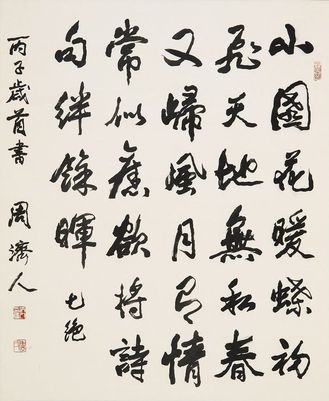 小園花暖蝶初
飛天地無私春
又歸風月有情
常似舊欲將詩
句絆餘暉 七絕
丙子歲首書 周濟人